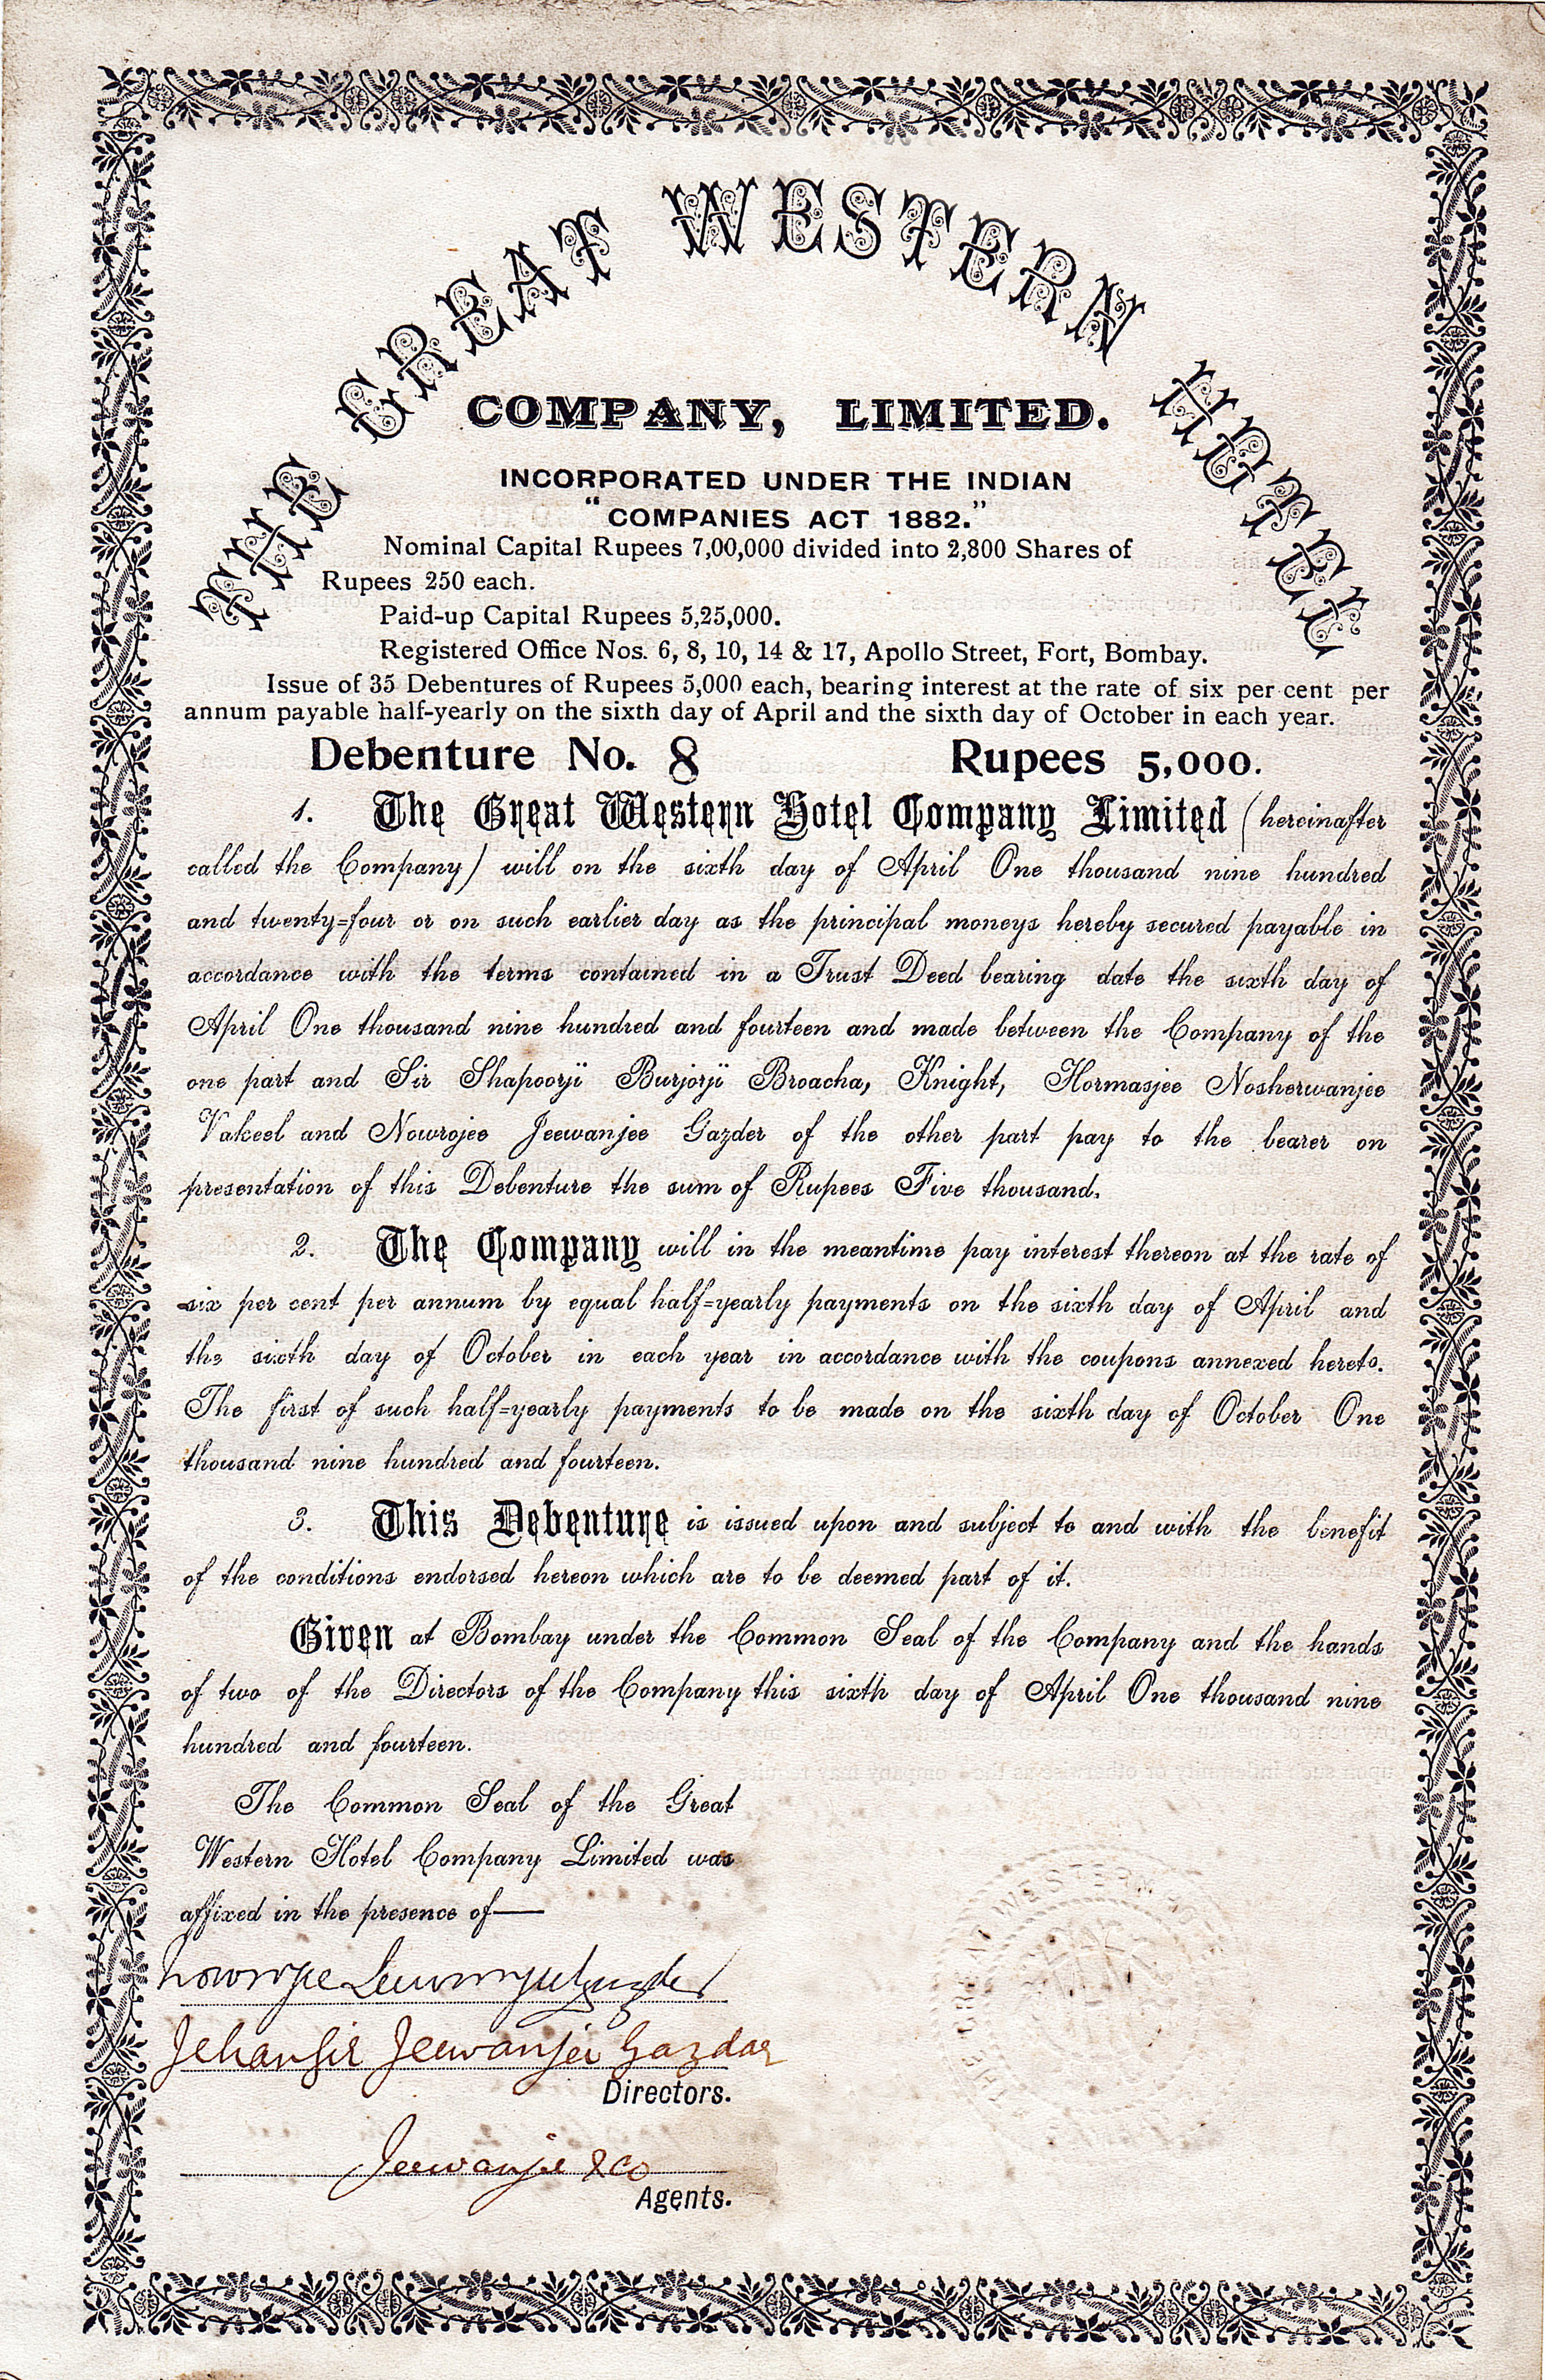 THE GREAT WESTERN HOTEL
COMPANY, LIMITED.
INCORPORATED UNDER THE INDIAN
"COMPANIES ACT 1882."
Nominal Capital Rupees 7,00,000 divided into 2,800 Shares of
Rupees 250 each.
Paid-up Capital Rupees 5,25,000.
Registered Office Nos. 6, 8, 10, 14 & 17, Apollo Street, Fort, Bombay.
Issue of 35 Debentures of Rupees 5,000 each, bearing interest at the rate of six per cent per
annum payable half-yearly on the sixth day of April and the sixth day of October in each year.
Debenture No. 8 Rupees 5,000.
1. The Great Western Hotel Company Limited (hereinafter
called the Company) will on the sixth day of April One thousand nine hundred
and twenty=four or on such earlier day as the principal moneys hereby secured payable in
accordance with the terms contained in a Trust Deed bearing date the sixth day of
April One thousand nine hundred and fourteen and made between the Company of the
one part and Sir Shapoorji Burjorji Broacha, Knight, Hormasjee Nosherwanjee
Vakeel and Nowrojee Jeewanjee Gazder of the other part pay to the bearer on
presentation of this Debenture the sum of Rupees Five thousand.
2. The Company will in the meantime pay interest thereon at the rate of
six per cent per annum by equal half=yearly payments on the sixth day of April and
the sixth day of October in each year in accordance with the coupons annexed hereto.
The first of such half=yearly payments to be made on the sixth day of October One
thousand nine hundred and fourteen.
3. This Debenture is issued upon and subject to and with the benefit
of the conditions endorsed hereon which are to be deemed part of it.
Given at Bombay under the Common Seal of the Company and the hands
of two of the Directors of the Company this sixth day of April One thousand nine
hundred and fourteen.
The Common Seal of the Great
Western Hotel Company Limited was
affixed in the presence of—
Nowrojee Jeewanjee Gazder
Jehangir Jeewanjee Gazdar
Directors.
Jeewanjee & Co
Agents.